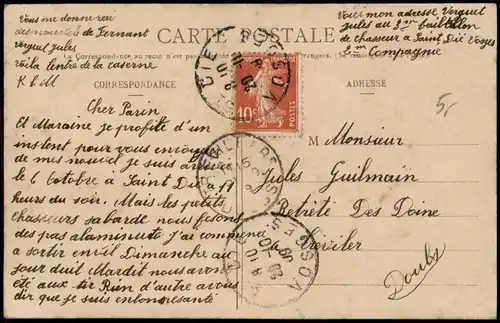 Vous me donne rez
des nouvelles de Fernant
verguet Jules
Voila lentré de la caserne
CARTE POSTALE
La Correspondance au recto n'est pas
étrangers. (Se
Voici mon adresse Verguet
Jules au 3me baitallon
de chasseur a Saint Dié Vosges
2me Compagnie
CORRESPONDANCE
ADRESSE
10c
POSTES
5,-
Cher Parin
Et Maraine je profite d'un
instent pour vous envoyer
de mes nouvel je suis arriver
le 6 octobre a Saint Dié a 11
heurs du soir. Mais les petits
chasseurs sabarde nous fesons
des pas alaminute j'ai commencé
a sortir envil Dimanche au
jour duit Mardit nous avons
éte aux tir Rien d'autre avous
dir que je suis enbonesanté
M Monsieur
Jules Guilmain
Retrété Des Doine
a
Doubs
DOUBS